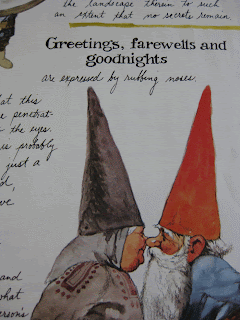 the landscape therein to such
an extent that no secrets remain.
Greetings, farewells and
goodnights
are expressed by rubbing noses.
at this
penetrat-
the eyes.
is probably
just a
and
what
erson's